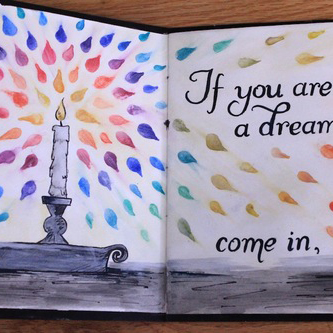 If you are
a dream
come in,